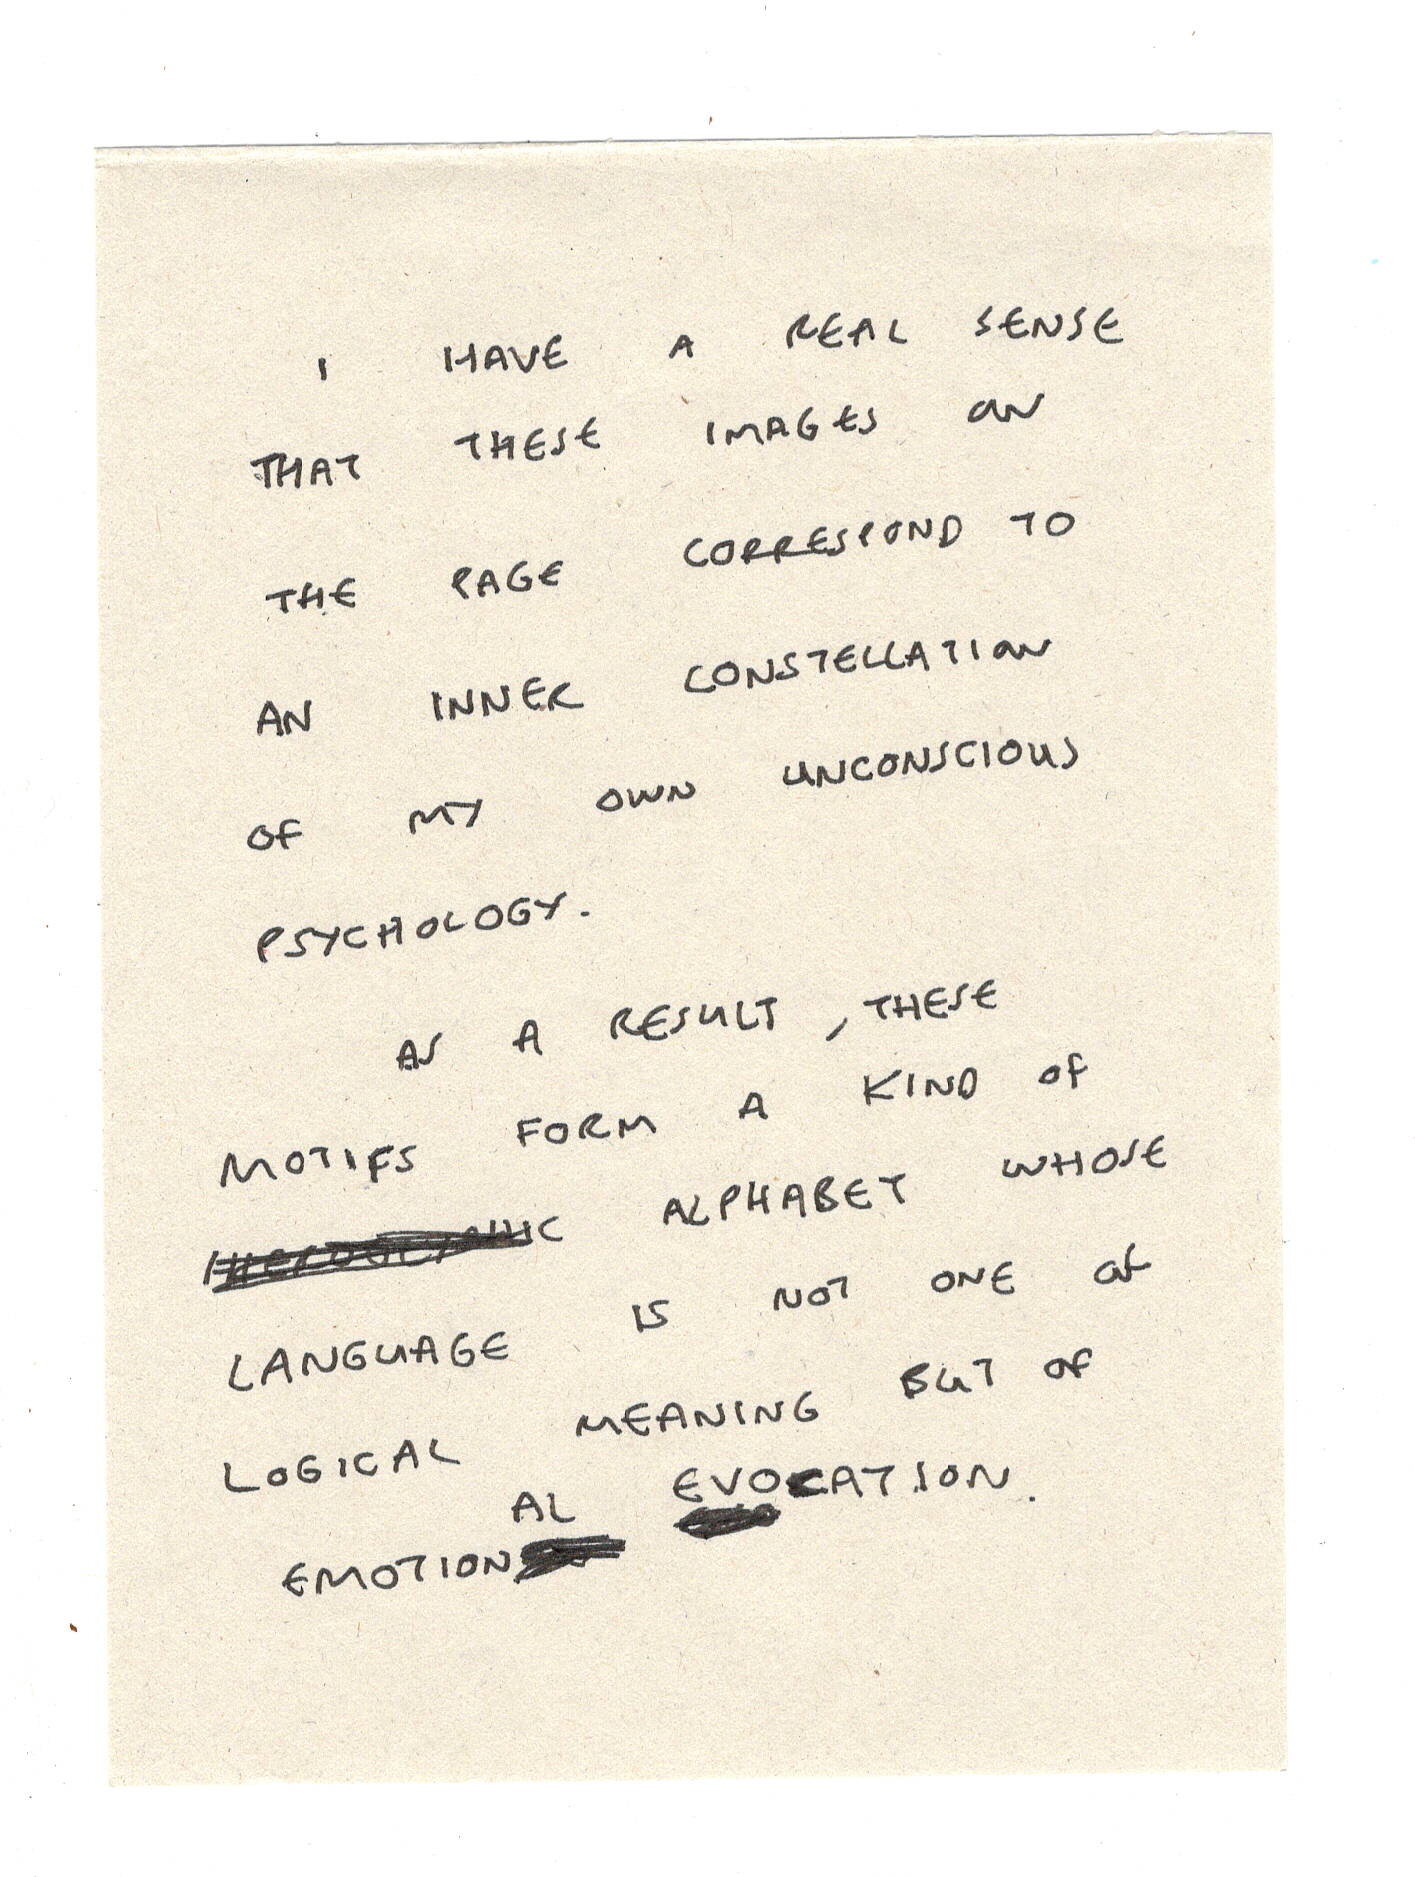 I HAVE A REAL SENSE
THAT THESE IMAGES ON
THE PAGE CORRESPOND TO
AN INNER CONSTELLATION
OF MY OWN UNCONSCIOUS
PSYCHOLOGY.
AS A RESULT, THESE
MOTIFS FORM A KIND OF
ALPHABET WHOSE
LANGUAGE IS NOT ONE OF
LOGICAL MEANING BUT OF
EMOTIONAL EVOCATION.